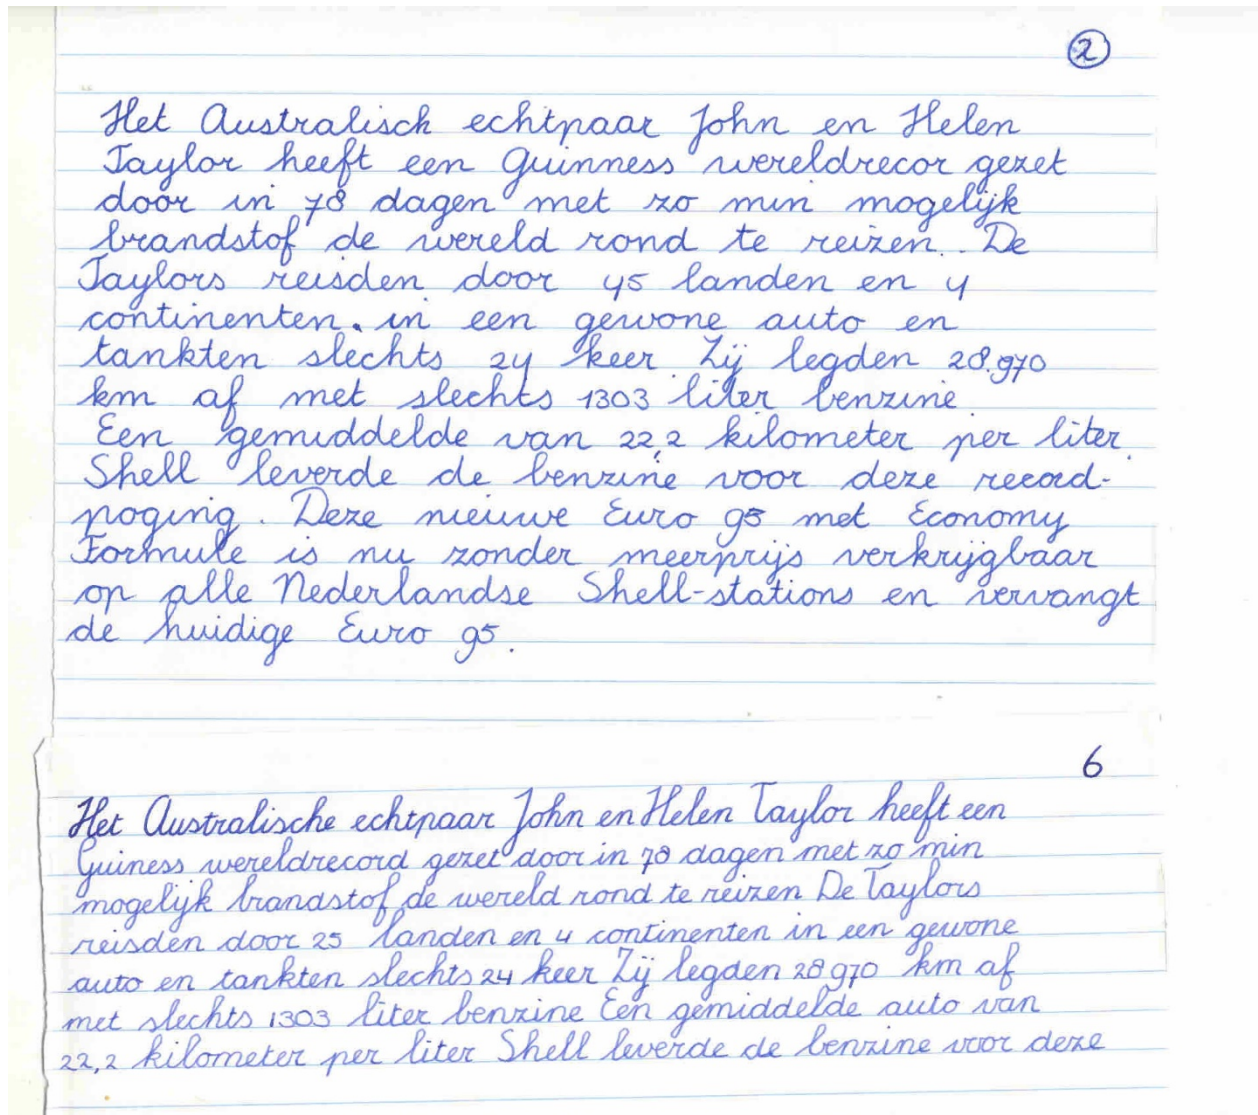 2
Het Australisch echtpaar John en Helen
Taylor heeft een Guinness wereldrecor gezet
door in 78 dagen met zo min mogelijk
brandstof de wereld rond te reizen. De
Taylors reisden door 45 landen en 4
continenten. in een gewone auto en
tankten slechts 24 keer. Zij legden 28.970
km af met slechts 1303 liter benzine
Een gemiddelde van 22,2 kilometer per liter.
Shell leverde de benzine voor deze record-
poging. Deze nieuwe Euro 95 met Economy
Formule is nu zonder meerprijs verkrijgbaar
op alle Nederlandse Shell-stations en vervangt
de huidige Euro 95.
6
Het Australische echtpaar John en Helen Taylor heeft een
Guiness wereldrecord gezet door in 78 dagen met zo min
mogelijk brandstof de wereld rond te reizen De Taylors
reisden door 25 landen en 4 continenten in een gewone
auto en tankten slechts 24 keer Zij legden 28970 km af
met slechts 1303 liter benzine Een gemiddelde auto van
22,2 kilometer per liter Shell leverde de benzine voor deze